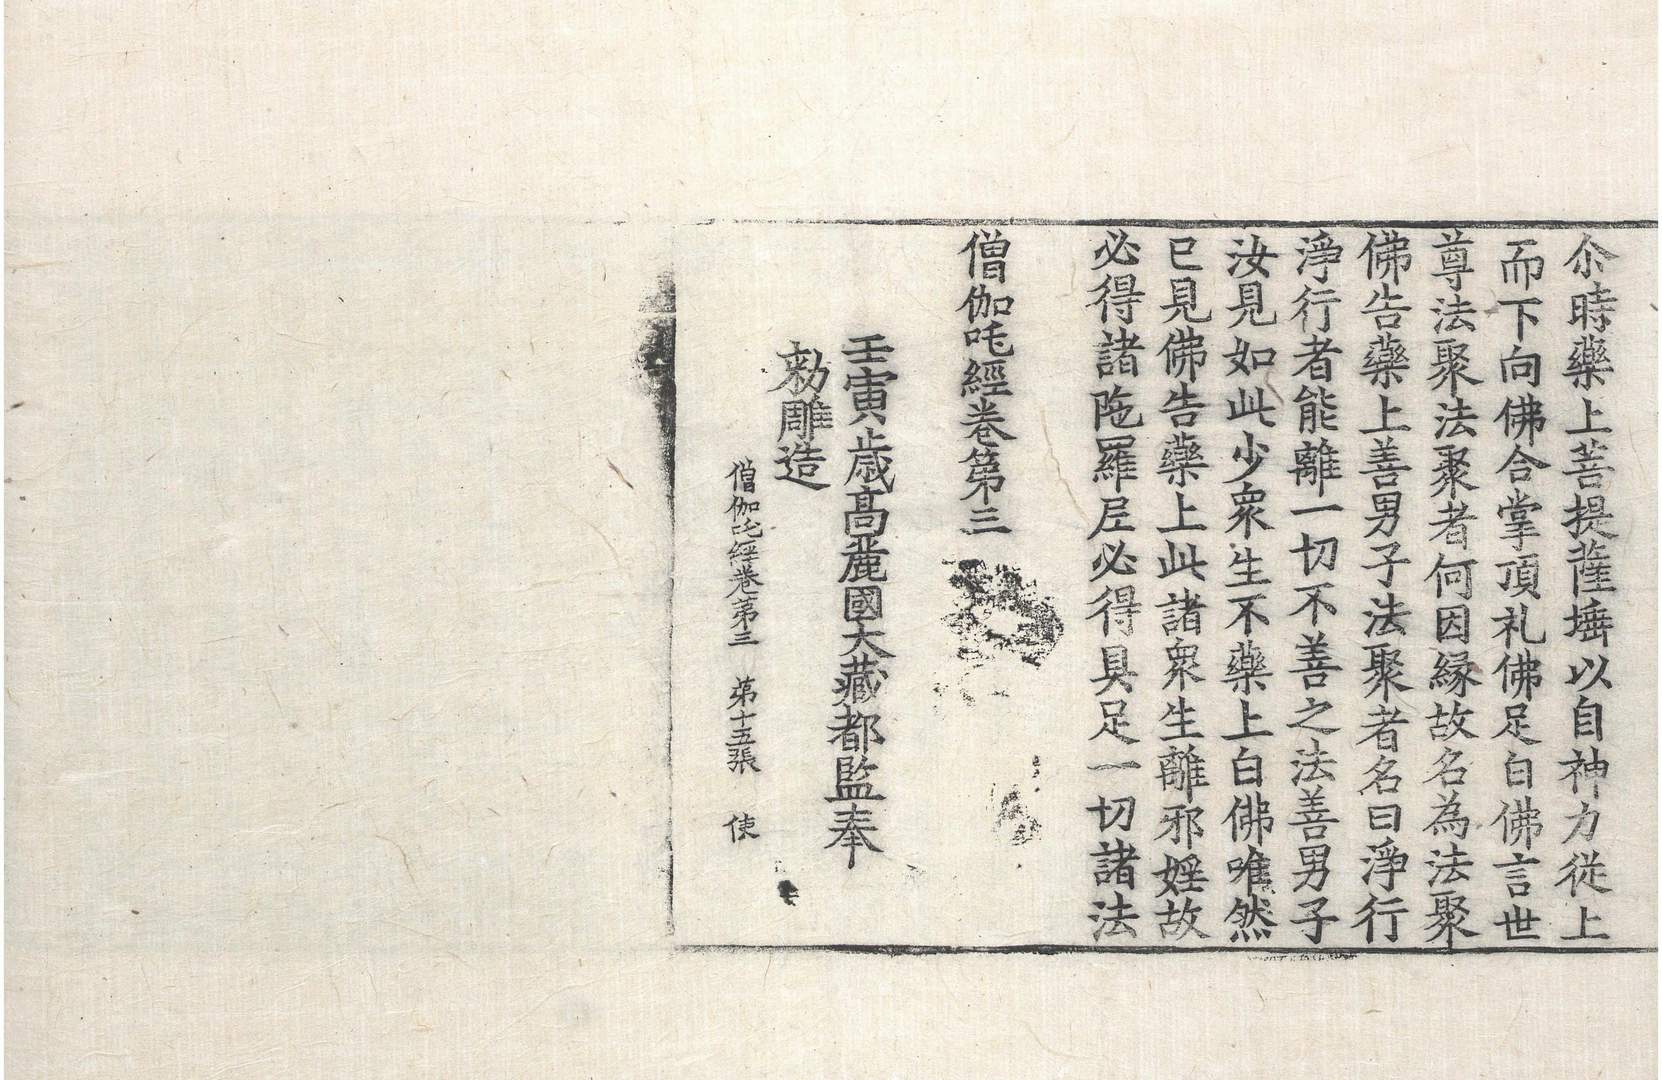 尒時藥上菩提薩埵以自神力從上
而下向佛合掌頂礼佛足白佛言世
尊法聚法聚者何因緣故名為法聚
佛告藥上善男子法聚者名曰淨行
淨行者能離一切不善之法善男子
汝見如此少衆生不藥上白佛唯然
已見佛告藥上此諸衆生離邪婬故
必得諸陁羅尼必得具足一切諸法
僧伽吒經卷第三
壬寅歲高麗國大藏都監奉
勑雕造
僧伽吒經卷第三 第十五張 使